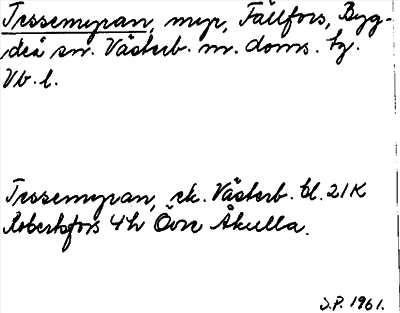 Tessemyran, myr, Fällfors, Byg-
deå sn. Västerb. m. doms. tg.
Vb. l.
Tessemyran, ek. Västerb. bl. 21K
Robertsfors 4h Övre Åkulla.
S.P. 1961.